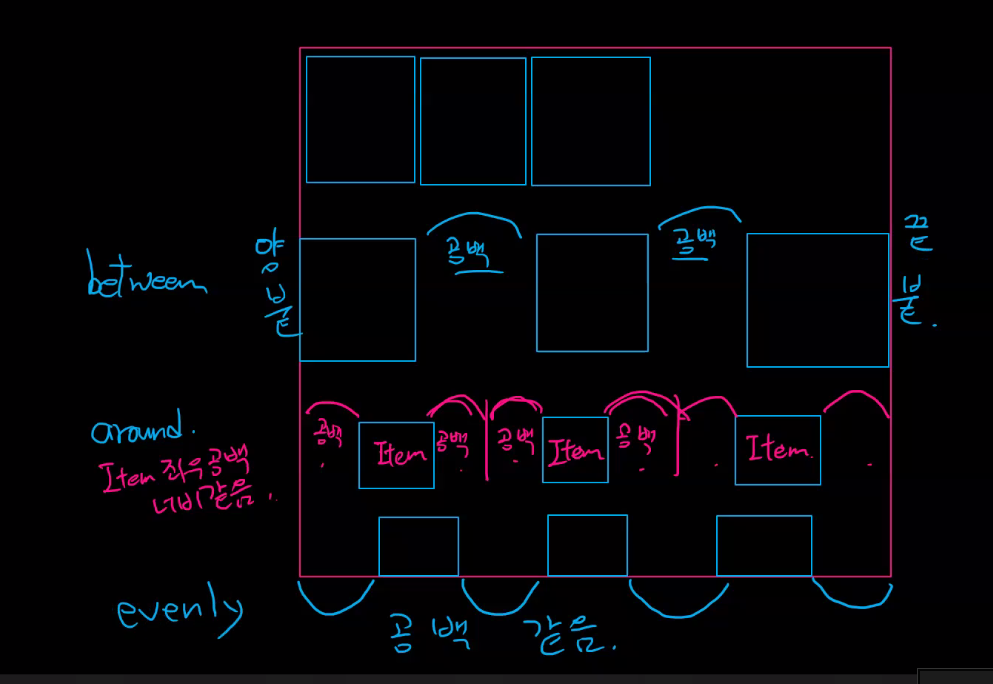 between
양
끝
공백
공백
끝
끝.
around.
Item 좌우 공백
너비 같음.
공백
Item
공백
공백
Item
공백
Item.
evenly
공백 같음.